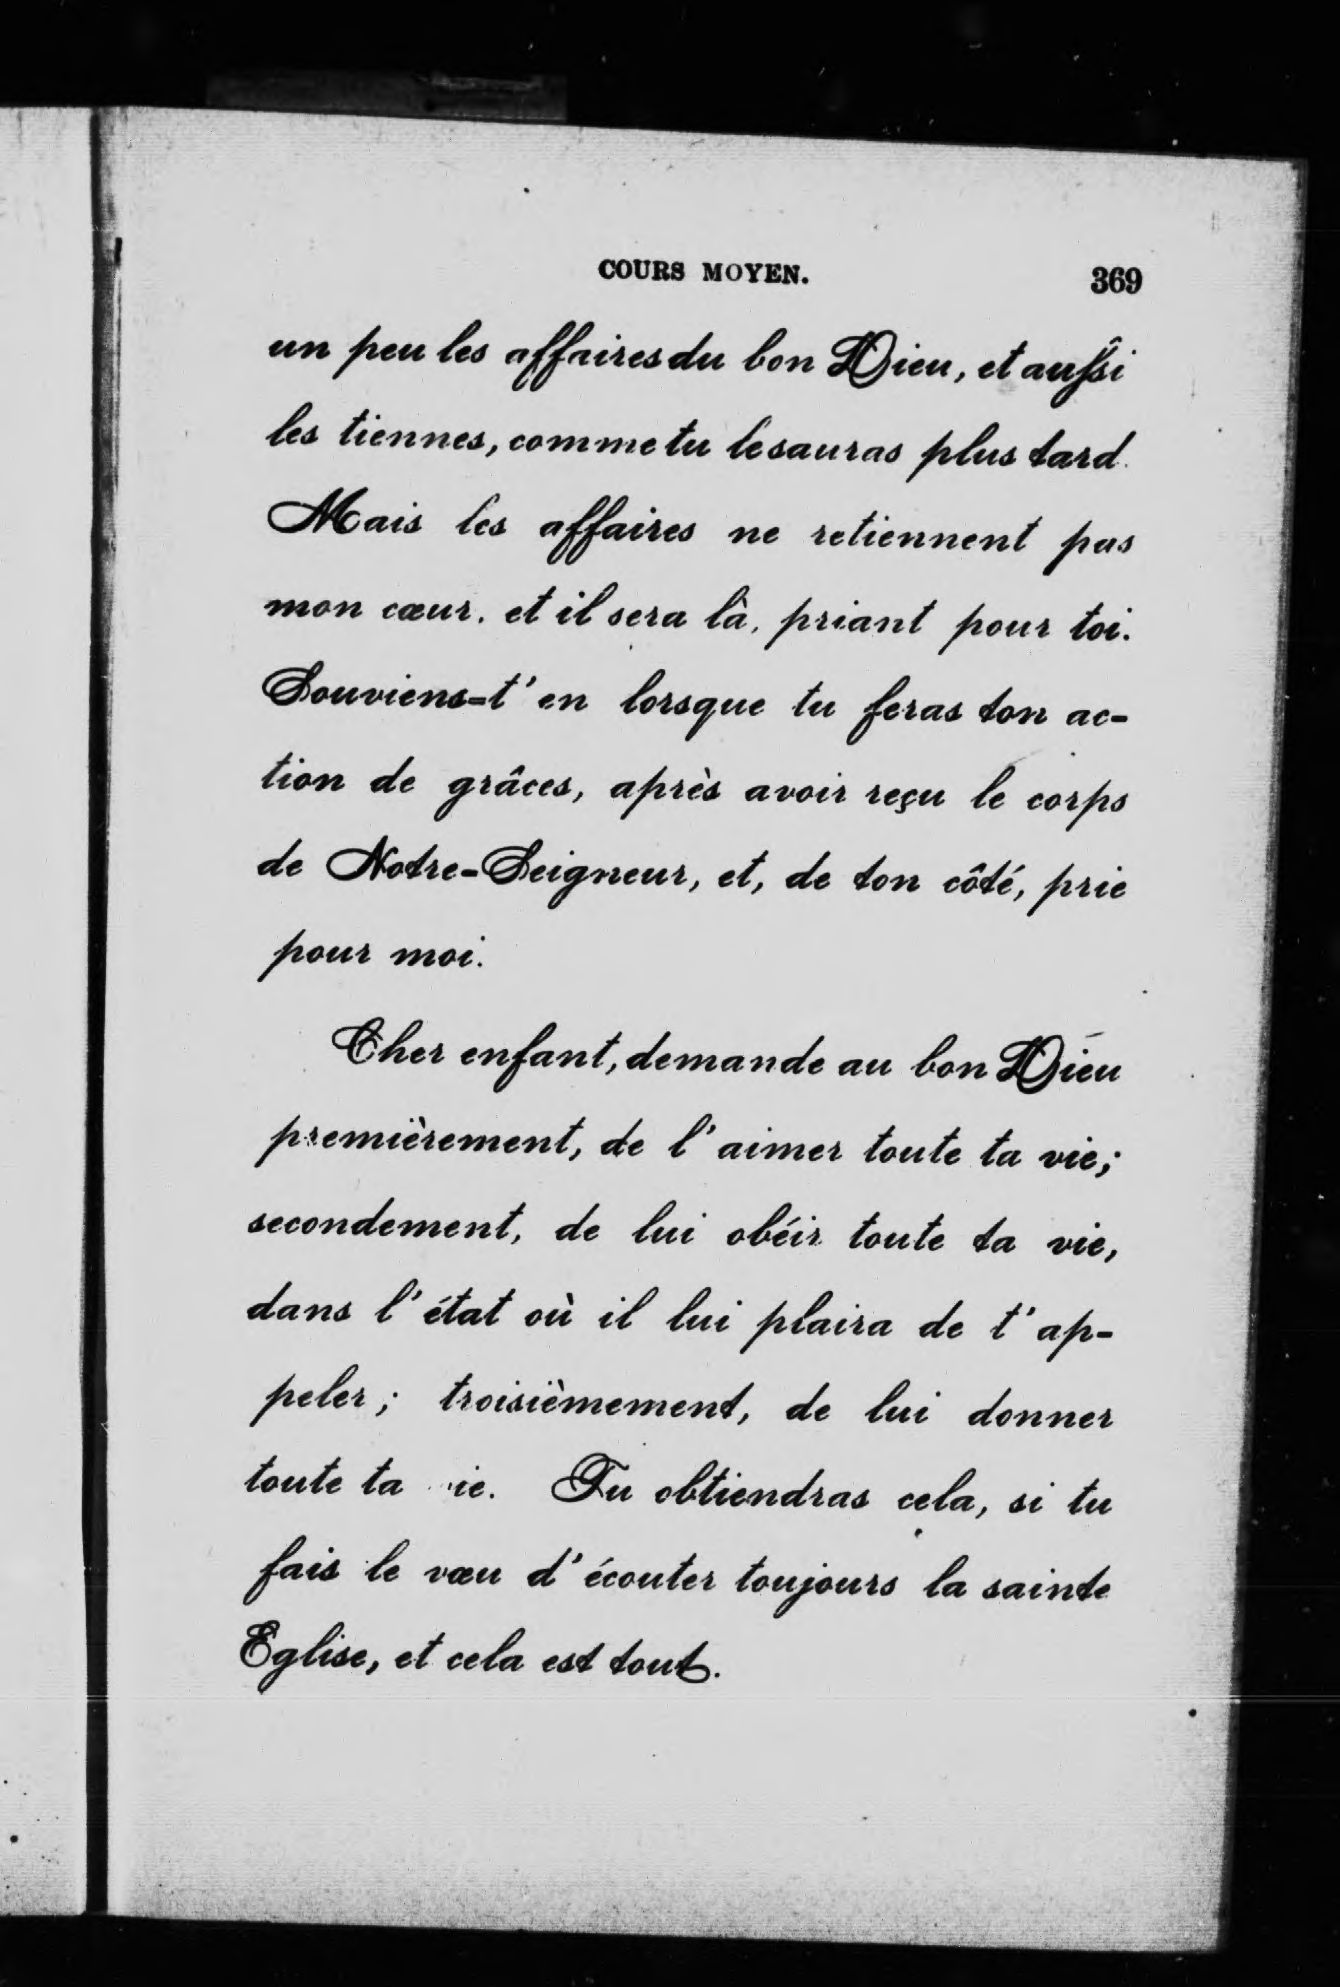 COURS MOYEN. 369
un peu les affaires du bon Dieu, et aussi
les tiennes, comme tu le sauras plus tard.
Mais les affaires ne retiennent pas
mon cœur, et il sera là, priant pour toi.
Souviens-t'en lorsque tu feras ton ac-
tion de grâces, après avoir reçu le corps
de Notre-Seigneur, et, de ton côté, prie
pour moi.
Cher enfant, demande au bon Dieu
premièrement, de l'aimer toute ta vie;
secondement, de lui obéir toute ta vie,
dans l'état où il lui plaira de t'ap-
peler; troisièmement, de lui donner
toute ta vie. Tu obtiendras cela, si tu
fais le vœu d'écouter toujours la sainte
Eglise, et cela est tout.